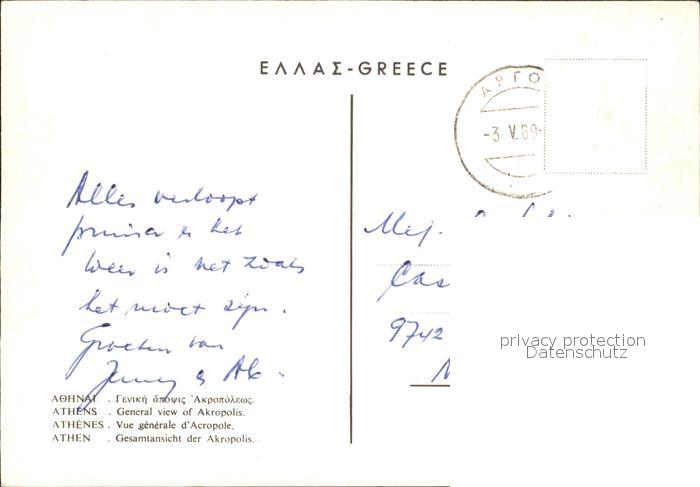 ΕΛΛΑΣ-GREECE
ΑΡΓΟ
-3 V.89-
Alles verloopt
prima en het
weer is net zoals
het moet zijn.
Groeten van
Jenny & Ab.
Mej.
Cas
9742
privacy protection
Datenschutz
ΑΘΗΝΑΙ . Γενική άποψις Ἀκροπόλεως.
ATHENS . General view of Akropolis.
ATHÈNES . Vue générale d'Acropole.
ATHEN . Gesamtansicht der Akropolis.